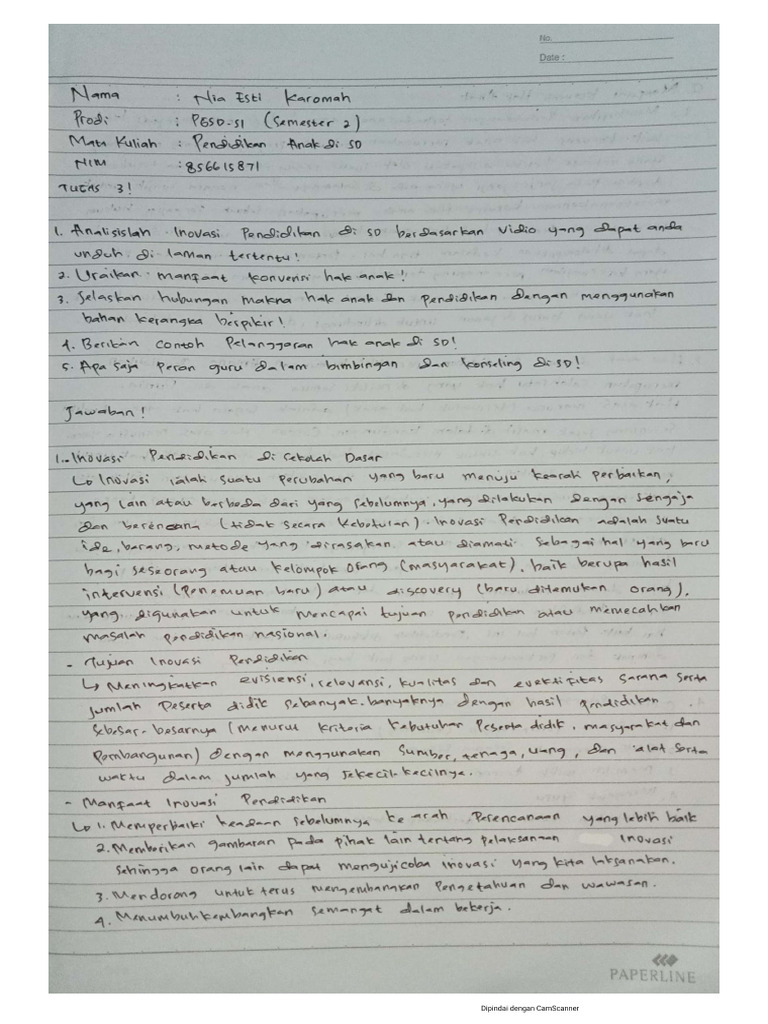 No.
Date :
Nama : Nia Esti Karomah
Prodi : PGSD-S1 (Semester 2)
Mata Kuliah : Pendidikan Anak di SD
NIM : 856615871
TUGAS 3!
1. Analisislah Inovasi Pendidikan di SD berdasarkan Vidio yang dapat anda
unduh di laman tertentu!
2. Uraikan manfaat konvensi hak anak!
3. Jelaskan hubungan makna hak anak dan pendidikan dengan menggunakan
bahan kerangka berpikir!
4. Berikan contoh Pelanggaran hak anak di SD!
5. Apa saja Peran guru dalam bimbingan dan konseling di SD!
Jawaban!
1. Inovasi Pendidikan di Sekolah Dasar
↳ Inovasi ialah suatu perubahan yang baru menuju kearah perbaikan,
yang lain atau berbeda dari yang sebelumnya, yang dilakukan dengan sengaja
dan berencana (tidak secara kebetulan). Inovasi Pendidikan adalah suatu
ide, barang, metode yang dirasakan atau diamati sebagai hal yang baru
bagi seseorang atau kelompok orang (masyarakat), baik berupa hasil
intervensi (Penemuan baru) atau discovery (baru ditemukan orang),
yang digunakan untuk mencapai tujuan pendidikan atau memecahkan
masalah pendidikan nasional.
- Tujuan Inovasi Pendidikan
↳ Meningkatkan evisiensi, relevansi, kualitas dan evektifitas sarana serta
jumlah Peserta didik sebanyak-banyaknya dengan hasil Pendidikan
sebesar-besarnya (menurut kriteria kebutuhan Peserta didik, masyarakat dan
Pembangunan) dengan menggunakan sumber, tenaga, uang, dan alat serta
waktu dalam jumlah yang sekecil-kecilnya.
- Manfaat Inovasi Pendidikan
↳ 1. Memperbaiki keadaan sebelumnya ke arah Perencanaan yang lebih baik
2. Memberikan gambaran pada pihak lain tentang pelaksanaan Inovasi
sehingga orang lain dapat mengujicoba inovasi yang kita laksanakan.
3. Mendorong untuk terus mengembangkan Pengetahuan dan wawasan.
4. Menumbuhkembangkan semangat dalam bekerja.
PAPERLINE
Dipindai dengan CamScanner